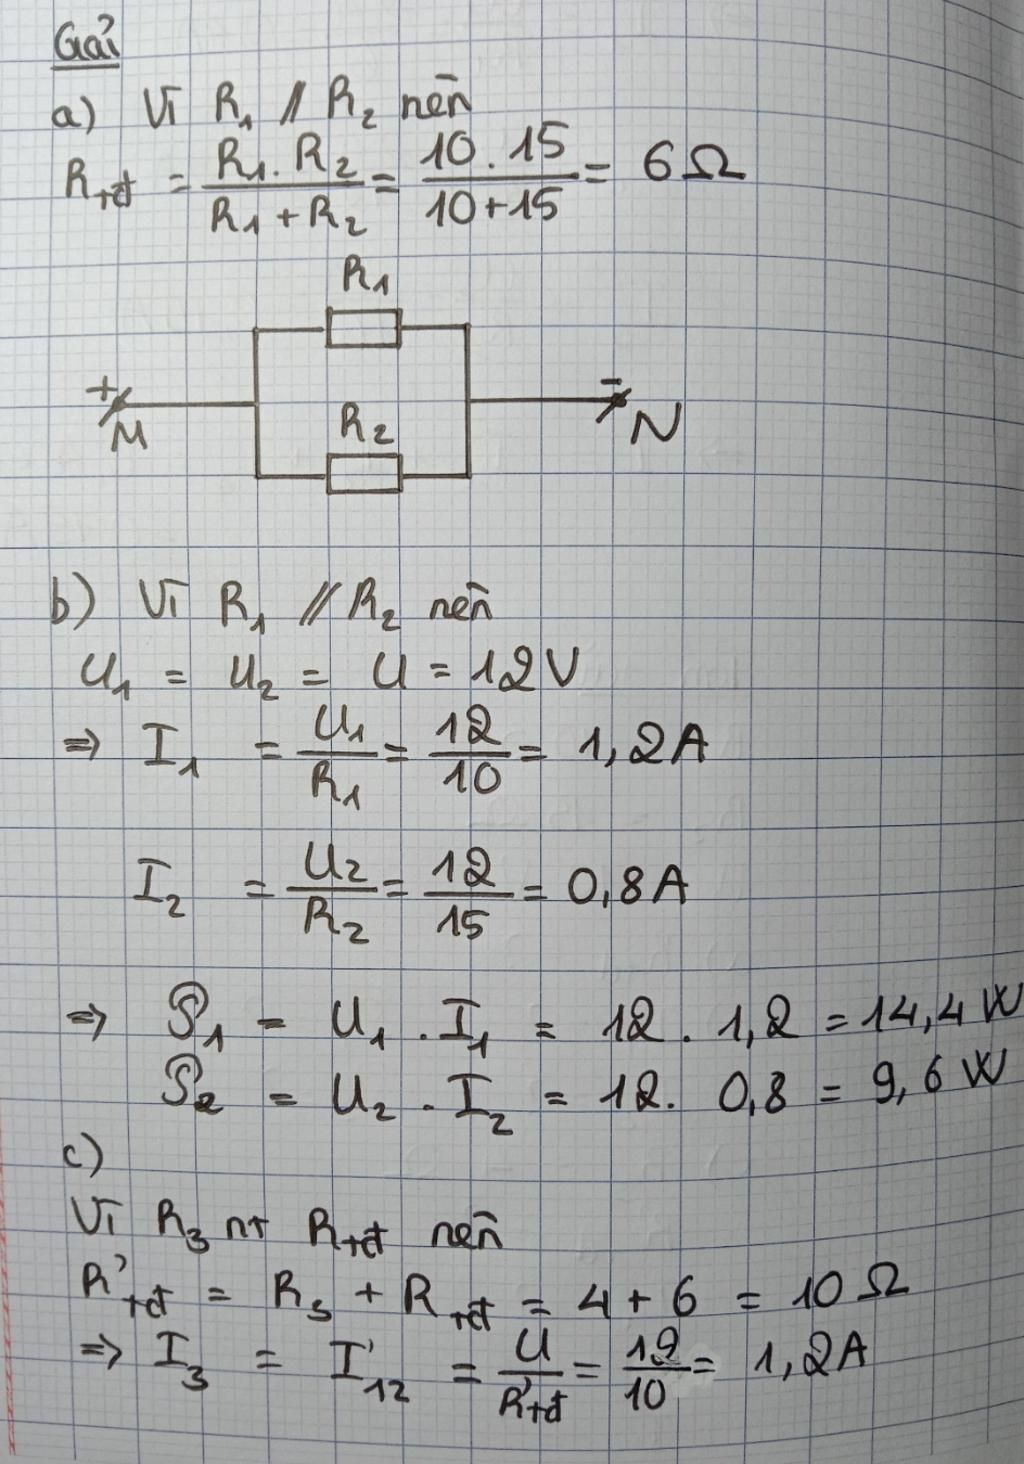 Giải
a) Vì R₁ // R₂ nên
R_tđ = (R₁ . R₂)/(R₁ + R₂) = (10 . 15)/(10 + 15) = 6 Ω
R₁
+ M
R₂
- N
b) Vì R₁ // R₂ nên
U₁ = U₂ = U = 12V
⇒ I₁ = U₁/R₁ = 12/10 = 1,2A
I₂ = U₂/R₂ = 12/15 = 0,8A
⇒ P₁ = U₁ . I₁ = 12 . 1,2 = 14,4 W
P₂ = U₂ . I₂ = 12 . 0,8 = 9,6 W
c)
Vì R₃ nt R_tđ nên
R'_tđ = R₃ + R_tđ = 4 + 6 = 10 Ω
⇒ I₃ = I'₁₂ = U/R'_tđ = 12/10 = 1,2A